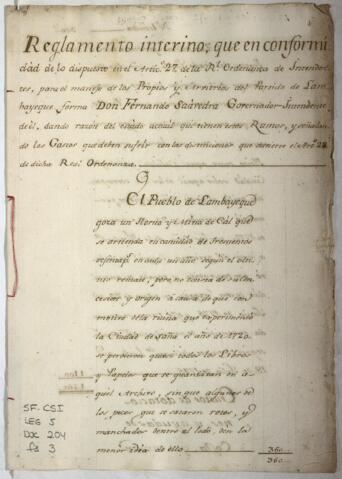 Reglamento interino, que en conformi
dad de lo dispuesto en el Artic.º 27 de la Rl. Ordenanza de Intenden
tes, para el manejo de los Propios y Arvitrios del Partido de Lam
bayeque forma Don Fernando Saavedra Governador-Intendente
de el, dando razon del estado actual que tienen estos Ramos, y señalan
do los Gastos que deben sufrir con las distinciones que advierte el Artº 28
de dicha Real Ordenanza.
El Pueblo de Lambayeque
goza un y Mina de Cal que
se arrienda en cantidad de trecientos
sesenta p.s en cada un año segun el ulti
mo remate, pero no tiene de su con
cesion y origen a causa de que con
motivo dela ruina que experimentó
la Ciudad de Saña el año de 1720
se perdieron quasi todos los Libros
y Papeles que se guardaban en a
quel Archivo, sin que algunos de
los pocos que se sacaron rotos, y
manchados dentro al lodo, den la
menor idea de ello 360
360
SF. CSI
LEG 5
DOC 204
fs 3